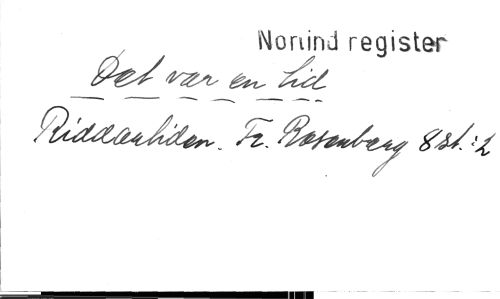 Norlind register
Det var en tid
Riddartiden. Fr. Rosenberg 8 st. :2